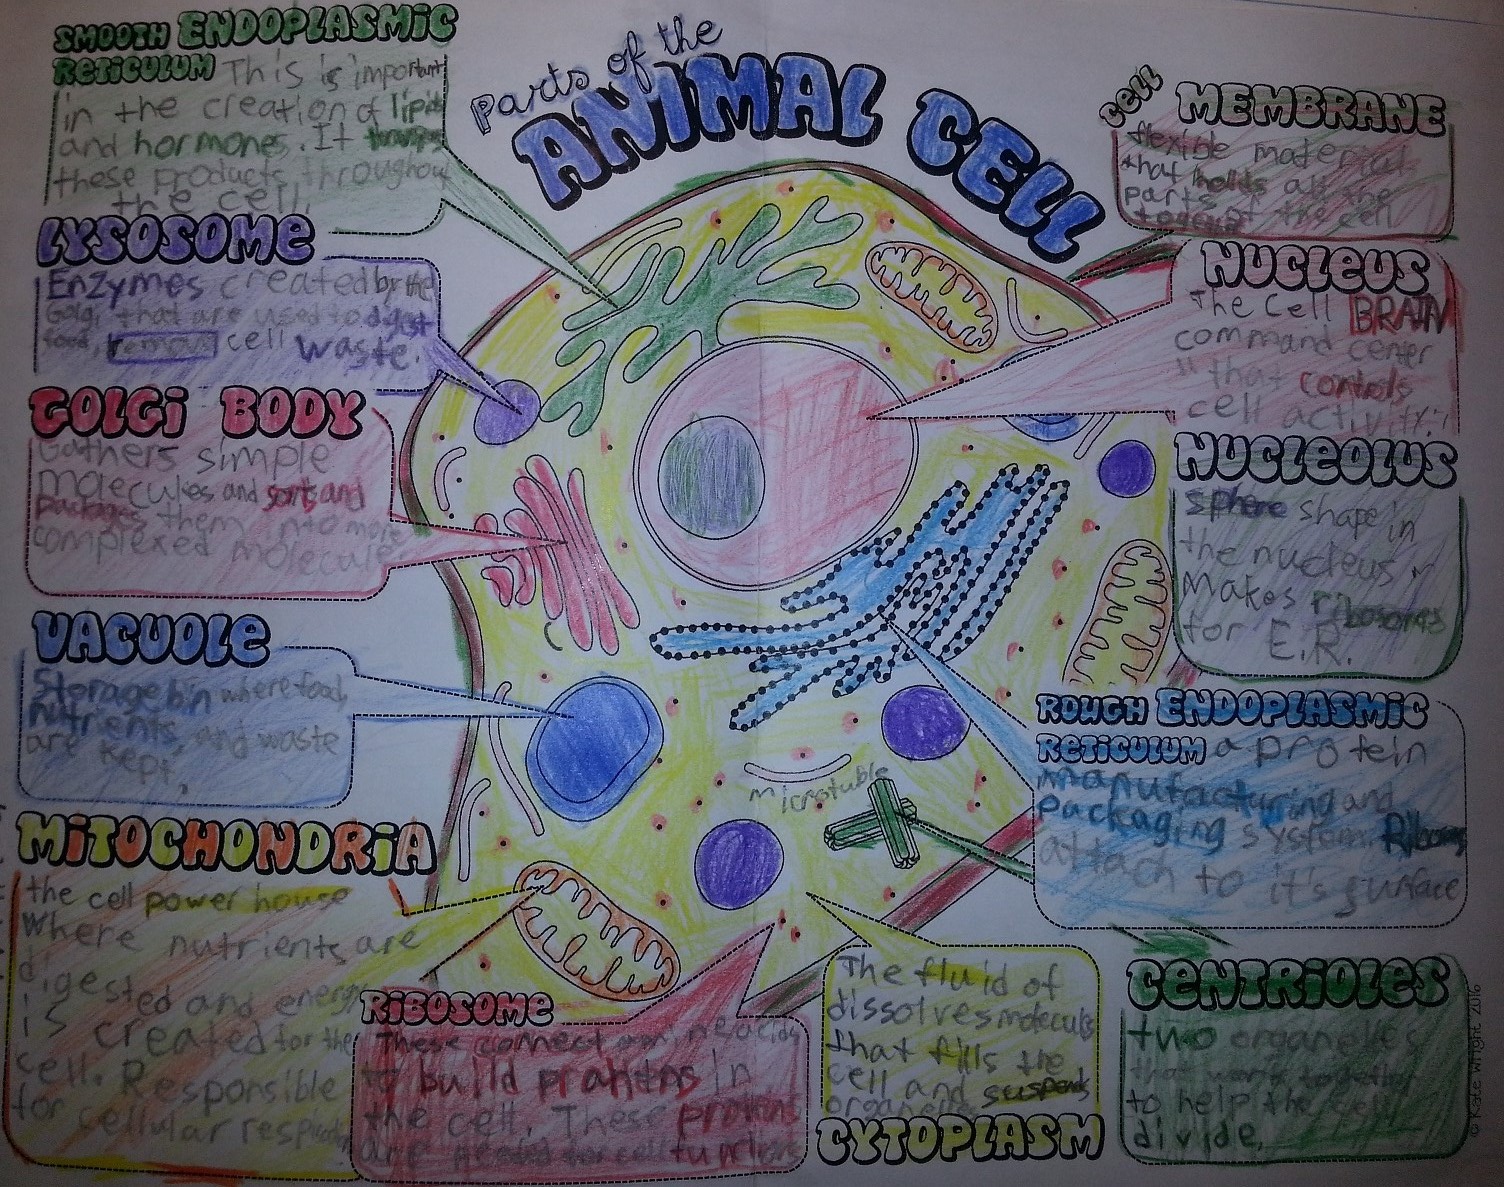 parts of the
ANIMAL CELL
SMOOTH ENDOPLASMIC
RETICULUM This is important
in the creation of lipids
and hormones. It
these products throughout
the cell.
LYSOSOME
Enzymes created by the
Golgi that are used to digest
food, remove cell waste.
GOLGI BODY
Gathers simple
molecules and sorts and
packages them into more
complexed molecule
VACUOLE
Storage bin where food,
nutrients, and waste
are kept.
MITOCHONDRIA
the cell power house
Where nutrients are
digested and energy
is created for the
cell. Responsible
for cellular respiration
RIBOSOME
These connect amino acids
to build in
the cell. These proteins
are needed for cell functions
The fluid of
dissolves molecules
that fills the
cell and suspends
organelle
CYTOPLASM
microtuble
CELL MEMBRANE
flexible material
that holds all the
parts of the cell
together
NUCLEUS
The Cell BRAIN
command center
" that controls
cell activity."
NUCLEOLUS
sphere shape in
the nucleus
Makes ribosomes
for E.R.
ROUGH ENDOPLASMIC
RETICULUM a protein
manufacturing and
packaging system. Ribosomes
attach to it's surface
CENTRIOLES
two organelles
that work together
to help the cell
divide.
© Kate Wright 2016